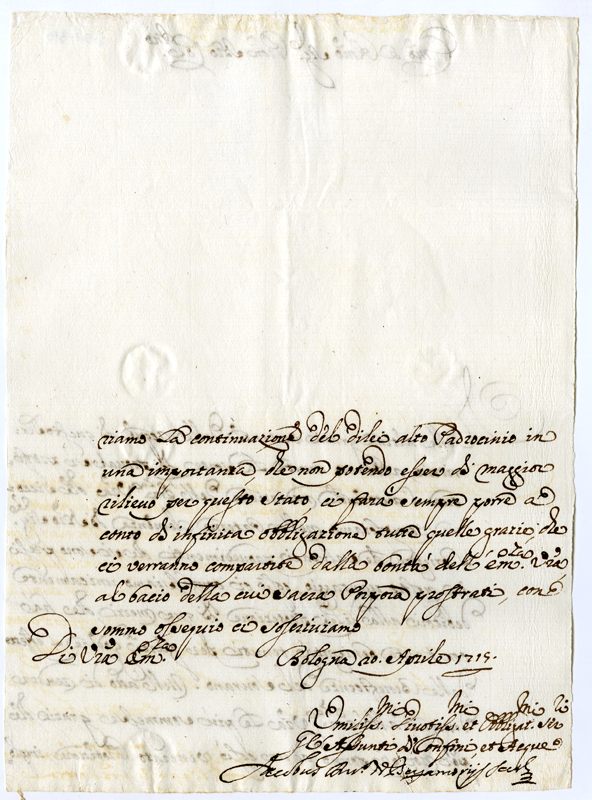 riamo la continuazione del dilei alto Padrocinio in
una importanza che non potendo esser di maggior
rilievo per questo Stato, ci farà sempre porre a
conto di infinita obbligazione tutte quelle grazie che
ci verranno compartite dalla bontà dell' Em.za Vra,
al bacio della cui Sacra Porpora prostrati, con
sommo ossequio ci sosscriviamo
Di Vra Em.za Bologna 20. Aprile 1715.
Umiliss.mi Divotiss.mi et Obbligat.mi Ser.ri
Gli Assunti di Confini et Acque
Jacobus Ant.